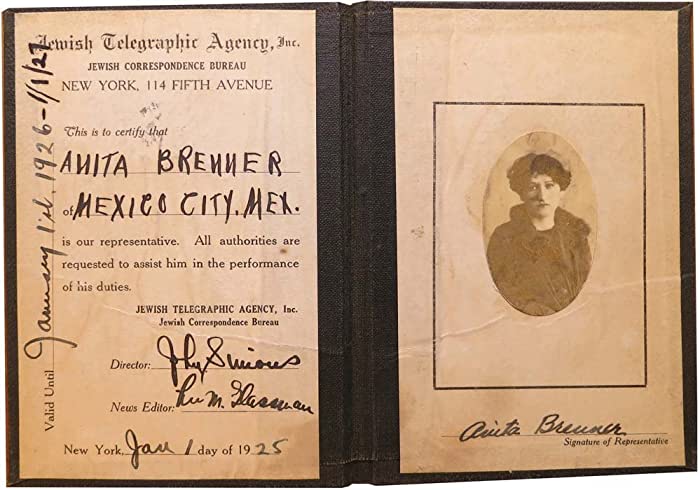 Jewish Telegraphic Agency, Inc.
JEWISH CORRESPONDENCE BUREAU
NEW YORK, 114 FIFTH AVENUE
This is to certify that
ANITA BRENNER
of MEXICO CITY, MEX.
is our representative. All authorities are
requested to assist him in the performance
of his duties.
JEWISH TELEGRAPHIC AGENCY, Inc.
Jewish Correspondence Bureau
Director:
News Editor: M. Glassman
New York, Jan 1 day of 1925
Valid Until January 1st, 1926 - 1/1/27
Anita Brenner
Signature of Representative